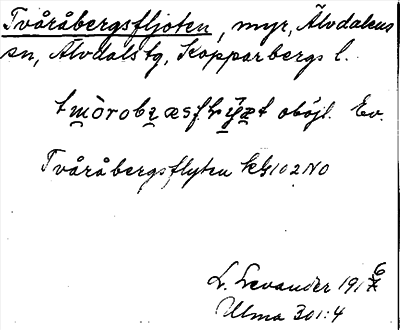 Tvåråbergsfljoten, myr, Älvdalens
sn, Älvdals tg, Kopparbergs l.
oböjl. Ev.
Tvåråbergsflyten kG102NO
L. Levander 1916
Ulma 301:4